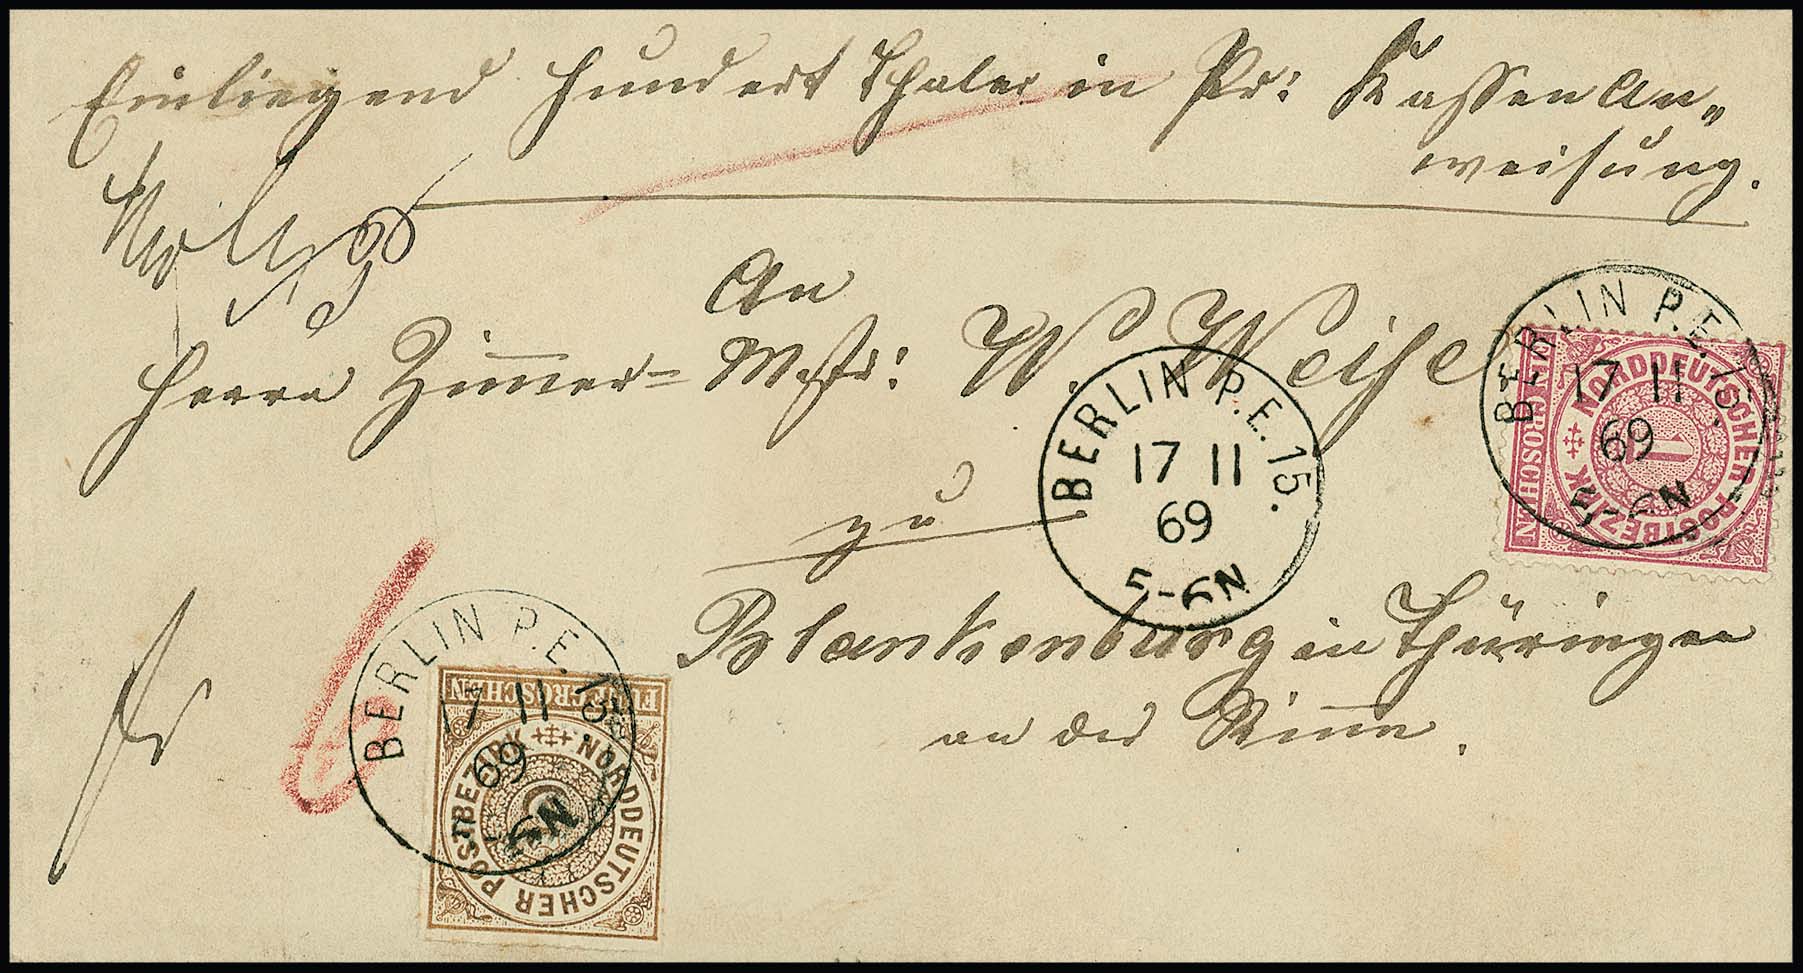 Einliegend Hundert Thaler in Pr: Kassen An„
weisung.
An
Herrn Zimmer= Mstr: W. Weise
zu
Blankenburg in Thüringen
an der Rinne.
fr
6
BERLIN P.E. 15.
17 11
69
5-6N
BERLIN P.E. 15.
17 11
69
5-6N
GROSCHEN
NORDDEUTSCHER POSTBEZIRK
1
GROSCHEN
BERLIN P.E. 15.
17 11
69
5-6N
FÜNF GROSCHEN
NORDDEUTSCHER POSTBEZIRK